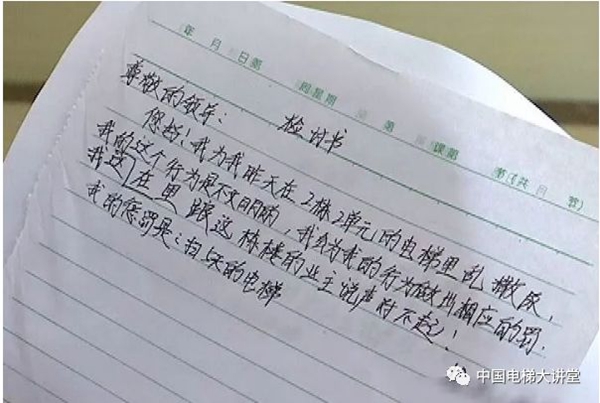 年 月 日期 周星期 第 课第 节(共 节)
检讨书
尊敬的领导:
你好!我为我昨天在2栋2单元的电梯里乱撒尿,
我的这个行为是不文明的,我会为我的行为做出相应的罚.
我这在里 跟这栋楼的业主说声对不起!
我的惩罚是:扫 天的电梯
中国电梯大讲堂